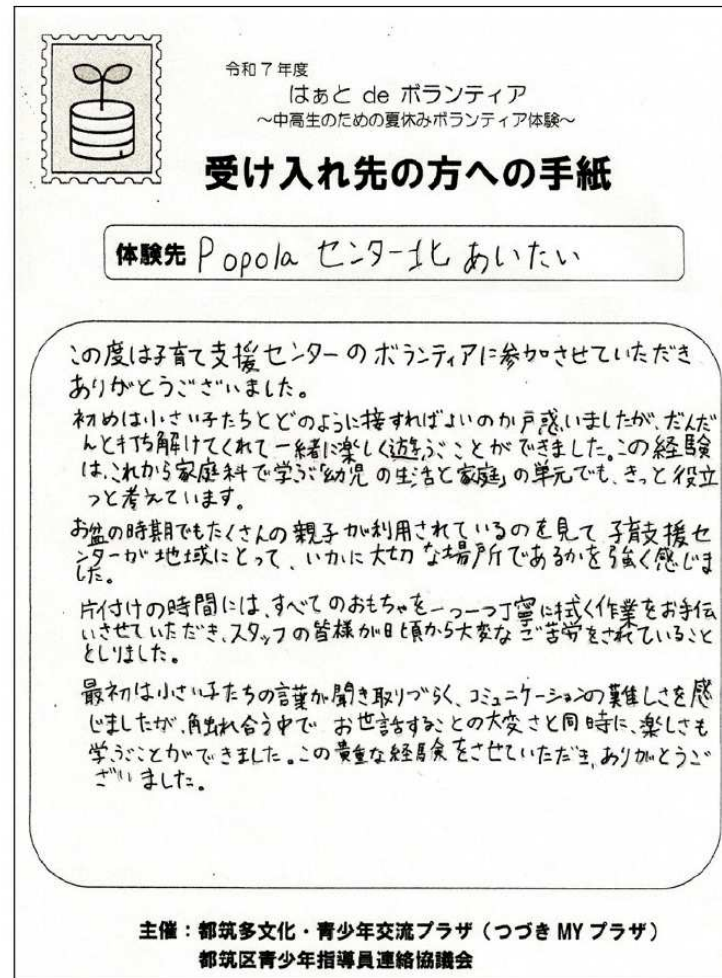 令和7年度
はぁと de ボランティア
～中高生のための夏休みボランティア体験～
受け入れ先の方への手紙
体験先 Popola センター北 あいたい
この度は子育て支援センターのボランティアに参加させていただき
ありがとうございました。
初めは小さい子たちとどのように接すればよいのか戸惑いましたが、だんだ
んと打ち解けてくれて一緒に楽しく遊ぶことができました。この経験
は、これから家庭科で学ぶ「幼児の生活と家庭」の単元でも、きっと役立
つと考えています。
お盆の時期でもたくさんの親子が利用されているのを見て子育支援セ
ンターが地域にとって、いかに大切な場所であるかを強く感じま
した。
片付けの時間には、すべてのおもちゃを一つ一つ丁寧に拭く作業をお手伝
いさせていただき、スタッフの皆様が日頃から大変なご苦労をされていること
としりました。
最初は小さい子たちの言葉が聞き取りづらく、コミュニケーションの難しさを感
じましたが、触れ合う中で お世話することの大変さと同時に、楽しさも
学ぶことができました。この貴重な経験をさせていただき、ありがとうご
ざいました。
主催：都筑多文化・青少年交流プラザ（つづき MY プラザ）
都筑区青少年指導員連絡協議会